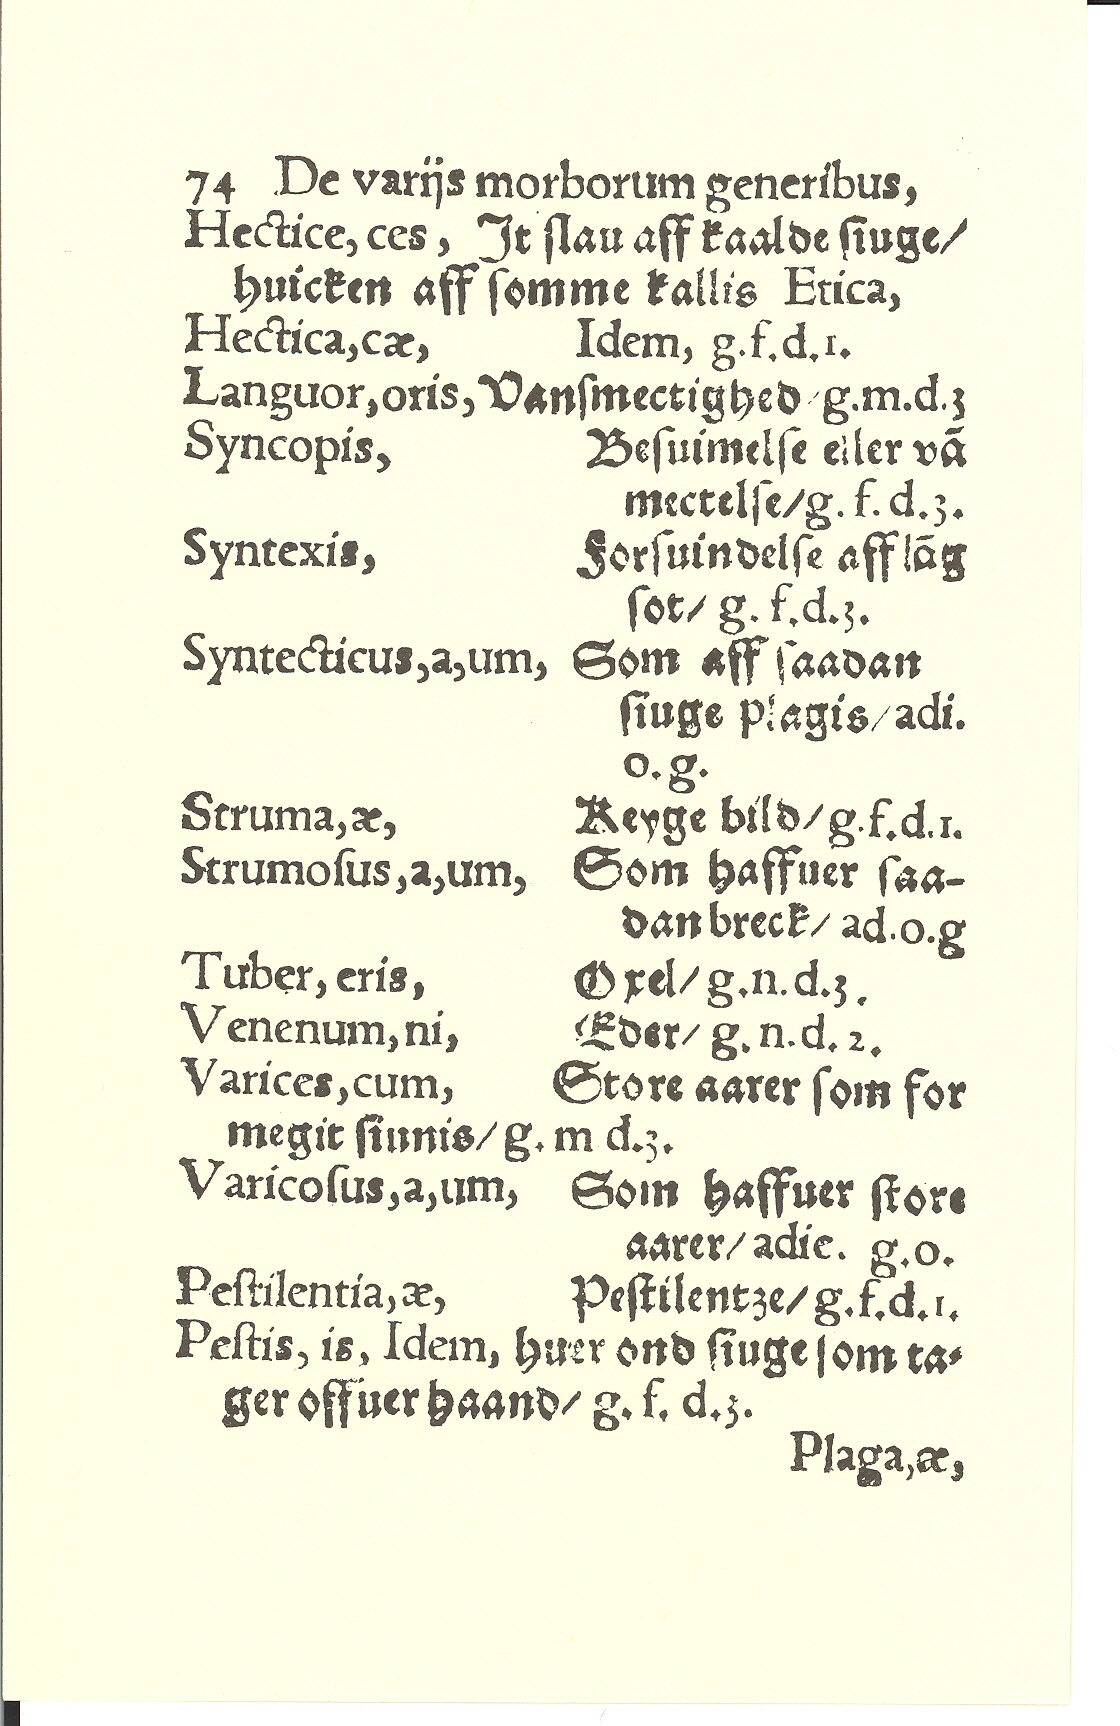 74 De varijs morborum generibus,
Hectice, ces, Jt ſlau aff kaalde ſiuge/
huicken aff ſomme kallis Etica,
Hectica, cæ, Idem, g.f.d.1.
Languor, oris, Vanſmectighed/g.m.d.3
Syncopis, Beſuimelſe eller vā
mectelſe/g.f.d.3.
Syntexis, Forſuindelſe aff lāg
ſot/ g.f.d.3.
Syntecticus, a, um, Som aff ſaadan
ſiuge plagis/adi.
o.g.
Struma, æ, Keyge bild/g.f.d.1.
Strumoſus, a, um, Som haffuer ſaa-
dan breck/ ad.o.g
Tuber, eris, Oxel/g.n.d.3.
Venenum, ni, Eder/ g.n.d.2.
Varices, cum, Store aarer ſom for
megit ſiunis/g. m d.3.
Varicoſus, a, um, Som haffuer ſtore
aarer/adie. g.o.
Peſtilentia, æ, Peſtilentze/g.f.d.1.
Peſtis, is, Idem, huer ond ſiuge ſom ta-
ger offuer haand/ g. f. d.3.
Plaga, æ,